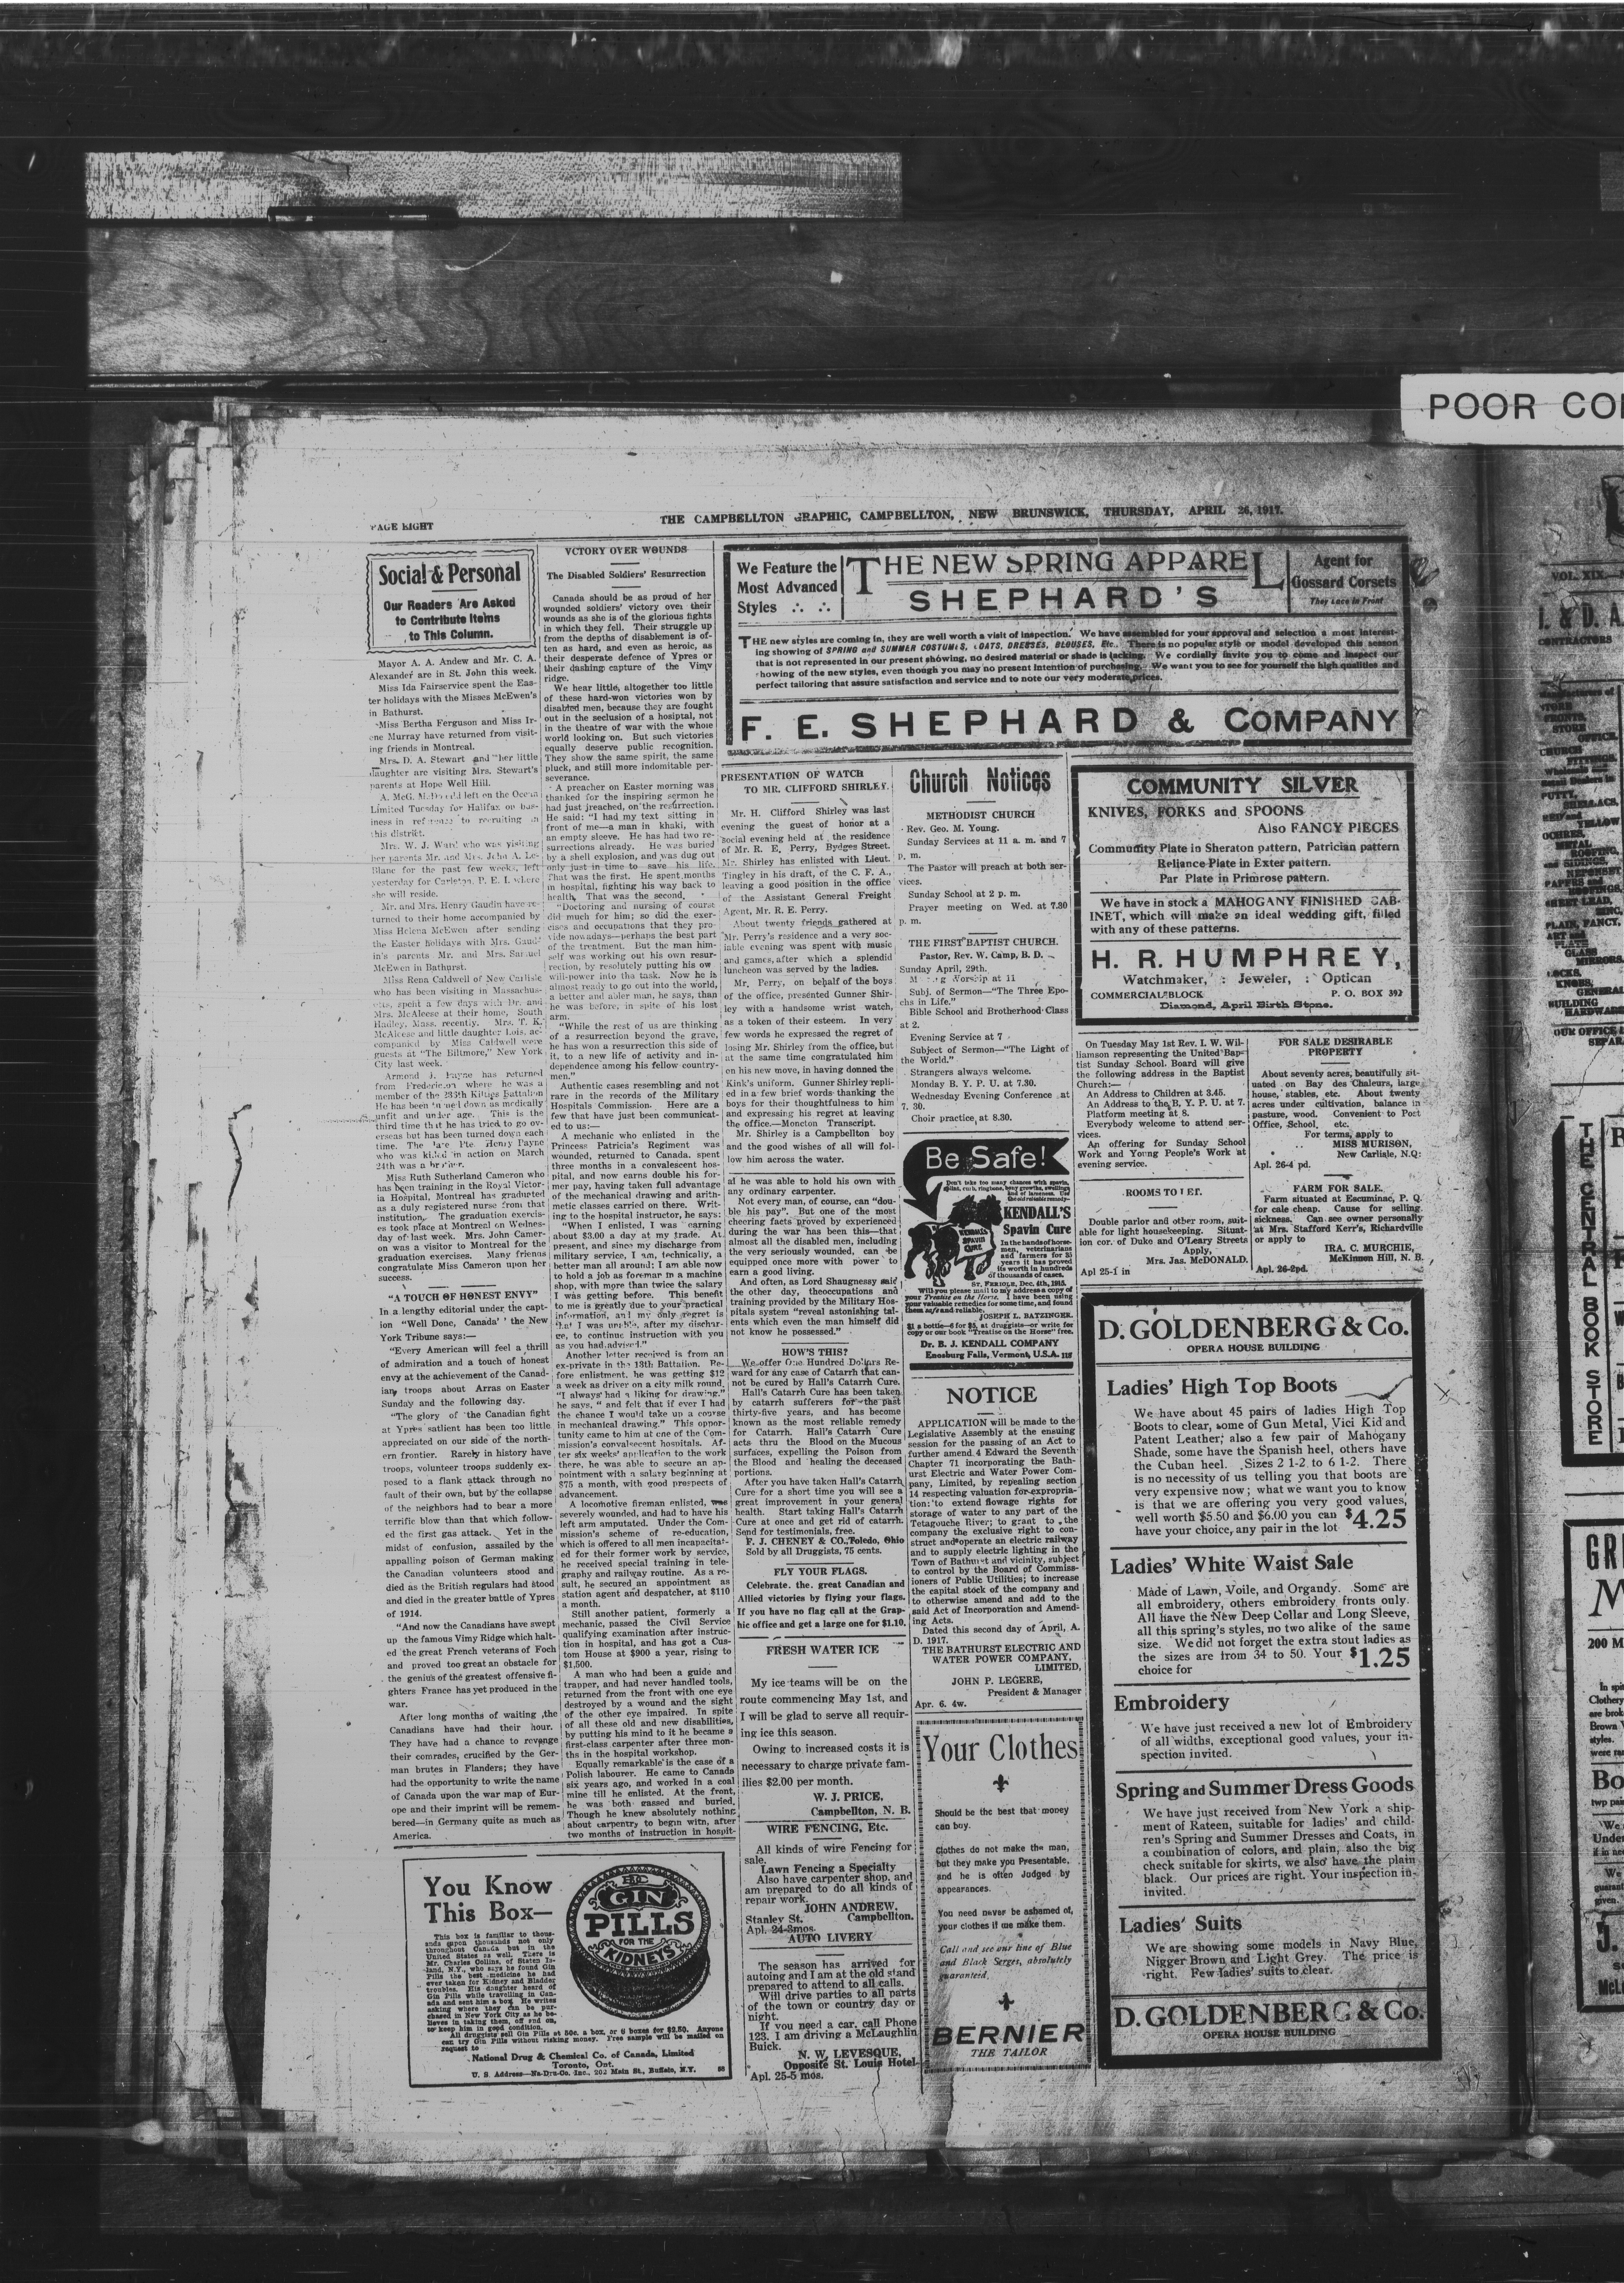 POOR CO
PAGE EIGHT
THE CAMPBELLTON GRAPHIC, CAMPBELLTON, NEW BRUNSWICK, THURSDAY, APRIL 26, 1917.
Social & Personal
Our Readers Are Asked
to Contribute Items
to This Column.
Mayor A. A. Andew and Mr. C. A.
Alexander are in St. John this week.
Miss Ida Fairservice spent the Eas-
ter holidays with the Misses McEwen's
in Bathurst.
Miss Bertha Ferguson and Miss Ir-
ene Murray have returned from visit-
ing friends in Montreal.
Mrs. D. A. Stewart and her little
daughter are visiting Mrs. Stewart's
parents at Hope Well Hill.
A. McG. McDonald left on the Ocean
Limited Tuesday for Halifax on bus-
iness in reference to recruiting in
this district.
Mrs. W. J. Ward who was visiting
her parents Mr. and Mrs. John A. Le-
Blanc for the past few weeks, left
yesterday for Carleton, P. E. I. where
she will reside.
Mr. and Mrs. Henry Gaudin have re-
turned to their home accompanied by
Miss Helena McEwen after sending
the Easter holidays with Mrs. Gaud-
in's parents Mr. and Mrs. Samuel
McEwen in Bathurst.
Miss Rena Caldwell of New Carlisle
who has been visiting in Massachus-
etts, spent a few days with Dr. and
Mrs. McAleese at their home, South
Hadley, Mass. recently. Mrs. T. K.
McAleese and little daughter Lois, ac-
companied by Miss Caldwell were
guests at "The Biltmore," New York
City last week.
Armond J. Payne has returned
from Fredericton where he was a
member of the 236th Kilties Battalion
He has been turned down as medically
unfit and under age. This is the
third time that he has tried to go ov-
erseas but has been turned down each
time. The late Pte. Henry Payne
who was killed in action on March
24th was a brother.
Miss Ruth Sutherland Cameron who
has been training in the Royal Victor-
ia Hospital, Montreal has graduted
as a duly registered nurse from that
institution. The graduation exercis-
es took place at Montreal on Wednes-
day of last week. Mrs. John Camer-
on was a visitor to Montreal for the
graduation exercises. Many friends
congratulate Miss Cameron upon her
success.
"A TOUCH OF HONEST ENVY"
In a lengthy editorial under the capt-
ion "Well Done, Canada'' the New
York Tribune says:—
"Every American will feel a thrill
of admiration and a touch of honest
envy at the achievement of the Canad-
ian troops about Arras on Easter
Sunday and the following day.
"The glory of the Canadian fight
at Ypres satlient has been too little
appreciated on our side of the north-
ern frontier. Rarely in history have
troops, volunteer troops suddenly ex-
posed to a flank attack through no
fault of their own, but by the collapse
of the neighbors had to bear a more
terrific blow than that which follow-
ed the first gas attack. Yet in the
midst of confusion, assailed by the
appalling poison of German making
the Canadian volunteers stood and
died as the British regulars had stood
and died in the greater battle of Ypres
of 1914.
"And now the Canadians have swept
up the famous Vimy Ridge which halt-
ed the great French veterans of Foch
and proved too great an obstacle for
the genius of the greatest offensive fi-
ghters France has yet produced in the
war.
After long months of waiting the
Canadians have had their hour.
They have had a chance to revenge
their comrades, crucified by the Ger-
man brutes in Flanders; they have
had the opportunity to write the name
of Canada upon the war map of Eur-
ope and their imprint will be remem-
bered—in Germany quite as much as
America.
VCTORY OVER WOUNDS
The Disabled Soldiers' Resurrection
Canada should be as proud of her
wounded soldiers' victory over their
wounds as she is of the glorious fights
in which they fell. Their struggle up
from the depths of disablement is of-
ten as hard, and even as heroic, as
their desperate defence of Ypres or
their dashing capture of the Vimy
ridge.
We hear little, altogether too little
of these hard-won victories won by
disabled men, because they are fought
out in the seclusion of a hosiptal, not
in the theatre of war with the whole
world looking on. But such victories
equally deserve public recognition.
They show the same spirit, the same
pluck, and still more indomitable per-
severance.
A preacher on Easter morning was
thanked for the inspiring sermon he
had just preached, on the resurrection.
He said: "I had my text sitting in
front of me—a man in khaki, with
an empty sleeve. He has had two re-
surrections already. He was buried
by a shell explosion, and was dug out
only just in time to save his life.
That was the first. He spent months
in hospital, fighting his way back to
health. That was the second.
"Doctoring and nursing of course
did much for him; so did the exer-
cises and occupations that they pro-
vide nowadays—perhaps the best part
of the treatment. But the man him-
self was working out his own resur-
rection, by resolutely putting his ow
will-power into tha task. Now he is
almost ready to go out into the world,
a better and abler man, he says, than
he was before, in spite of his lost
arm.
"While the rest of us are thinking
of a resurrection beyond the grave,
he has won a resurrection this side of
it, to a new life of activity and in-
dependence among his fellow country-
men."
Authentic cases resembling and not
rare in the records of the Military
Hospitals Commission. Here are a
few that have just been communicat-
ed to us:—
A mechanic who enlisted in the
Princess Patricia's Regiment was
wounded, returned to Canada, spent
three months in a convalescent hos-
pital, and now earns double his for-
mer pay, having taken full advantage
of the mechanical drawing and arith-
metic classes carried on there. Writ-
ing to the hospital instructor, he says:
"When I enlisted, I was earning
about $3.00 a day at my trade. At
present, and since my discharge from
military service, I am, technically, a
better man all around; I am able now
to hold a job as foreman in a machine
shop, with more than twice the salary
I was getting before. This benefit
to me is greatly due to your practical
information, and my only regret is
that I was unable, after my dischar-
ge, to continue instruction with you
as you had advised."
Another letter received is from an
ex-private in the 13th Battalion. Be-
fore enlistment, he was getting $12
a week as driver on a city milk round.
"I always had a liking for drawing,"
he says, " and felt that if ever I had
the chance I would take up a course
in mechanical drawing." This oppor-
tunity came to him at one of the Com-
mission's convalescent hospitals. Af-
ter six weeks' application to the work
there, he was able to secure an ap-
pointment with a salary beginning at
$75 a month, with good prospects of
advancement.
A locomotive fireman enlisted, was
severely wounded, and had to have his
left arm amputated. Under the Com-
mission's scheme of re-education,
which is offered to all men incapacitat-
ed for their former work by service,
he received special training in tele-
graphy and railway routine. As a re-
sult, he secured an appointment as
station agent and despatcher, at $110
a month.
Still another patient, formerly a
mechanic, passed the Civil Service
qualifying examination after instruc-
tion in hospital, and has got a Cus-
tom House at $900 a year, rising to
$1,500.
A man who had been a guide and
trapper, and had never handled tools,
returned from the front with one eye
destroyed by a wound and the sight
of the other eye impaired. In spite
of all these old and new disabilities,
by putting his mind to it he became a
first-class carpenter after three mon-
ths in the hospital workshop.
Equally remarkable is the case of a
Polish labourer. He came to Canada
six years ago, and worked in a coal
mine till he enlisted. At the front,
he was both gassed and buried.
Though he knew absolutely nothing
about carpentry to begin with, after
two months of instruction in hospit-
You Know
This Box—
This box is familiar to thous-
ands upon thousands not only
throughout Canada but in the
United States as well. There is
Mr. Charles Collins, of Staten Is-
land, N.Y., who says he found Gin
Pills the best medicine he had
ever taken for Kidney and Bladder
troubles. His daughter heard of
Gin Pills while travelling in Can-
ada and sent him a box. He writes
asking where they can be pur-
chased in New York City as he be-
lieves in taking them, off and on,
to keep him in good condition.
All druggists sell Gin Pills at 50c. a box, or 6 boxes for $2.50. Anyone
can try Gin Pills without risking money. Free sample will be mailed on
request to
National Drug & Chemical Co. of Canada, Limited
Toronto, Ont.
U. S. Address—Na-Dru-Co. Inc., 202 Main St., Buffalo, N.Y. 58
GIN
PILLS
FOR THE
KIDNEYS
We Feature the
Most Advanced
Styles
THE NEW SPRING APPAREL
SHEPHARD'S
Agent for
Gossard Corsets
They Lace In Front
THE new styles are coming in, they are well worth a visit of inspection. We have assembled for your approval and selection a most interest-
ing showing of SPRING and SUMMER COSTUMES, COATS, DRESSES, BLOUSES, Etc. There is no popular style or model developed this season
that is not represented in our present showing, no desired material or shade is lacking. We cordially invite you to come and inspect our
showing of the new styles, even though you may no present intention of purchasing. We want you to see for yourself the high qualities and
perfect tailoring that assure satisfaction and service and to note our very moderate prices.
F. E. SHEPHARD & COMPANY
PRESENTATION OF WATCH
TO MR. CLIFFORD SHIRLEY.
Mr. H. Clifford Shirley was last
evening the guest of honor at a
social evening held at the residence
of Mr. R. E. Perry, Bydges Street.
Mr. Shirley has enlisted with Lieut.
Tingley in his draft, of the C. F. A.,
leaving a good position in the office
of the Assistant General Freight
Agent, Mr. R. E. Perry.
About twenty friends gathered at
Mr. Perry's residence and a very soc-
iable evening was spent with music
and games, after which a splendid
luncheon was served by the ladies.
Mr. Perry, on behalf of the boys
of the office, presented Gunner Shir-
ley with a handsome wrist watch,
as a token of their esteem. In very
few words he expressed the regret of
losing Mr. Shirley from the office, but
at the same time congratulated him
on his new move, in having donned the
Kink's uniform. Gunner Shirley repli-
ed in a few brief words thanking the
boys for their thoughtfulness to him
and expressing his regret at leaving
the office.—Moncton Transcript.
Mr. Shirley is a Campbellton boy
and the good wishes of all will fol-
low him across the water.
al he was able to hold his own with
any ordinary carpenter.
Not every man, of course, can "dou-
ble his pay". But one of the most
cheering facts proved by experienced
during the war has been this—that
almost all the disabled men, including
the very seriously wounded, can be
equipped once more with power to
earn a good living.
And often, as Lord Shaugnessy said
the other day, theoccupations and
training provided by the Military Hos-
pitals system "reveal astonishing tal-
ents which even the man himself did
not know he possessed."
HOW'S THIS?
We offer One Hundred Dollars Re-
ward for any case of Catarrh that can-
not be cured by Hall's Catarrh Cure.
Hall's Catarrh Cure has been taken
by catarrh sufferers for the past
thirty-five years, and has become
known as the most reliable remedy
for Catarrh. Hall's Catarrh Cure
acts thru the Blood on the Mucous
surfaces, expelling the Poison from
the Blood and healing the deceased
portions.
After you have taken Hall's Catarrh
Cure for a short time you will see a
great improvement in your general
health. Start taking Hall's Catarrh
Cure at once and get rid of catarrh.
Send for testimonials, free.
F. J. CHENEY & CO., Toledo, Ohio
Sold by all Druggists, 75 cents.
FLY YOUR FLAGS.
Celebrate the great Canadian and
Allied victories by flying your flags.
If you have no flag call at the Grap-
hic office and get a large one for $1.10.
FRESH WATER ICE
My ice teams will be on the
route commencing May 1st, and
I will be glad to serve all requir-
ing ice this season.
Owing to increased costs it is
necessary to charge private fam-
ilies $2.00 per month.
W. J. PRICE,
Campbellton, N. B.
WIRE FENCING, Etc.
All kinds of wire Fencing for
sale.
Lawn Fencing a Specialty
Also have carpenter shop, and
am prepared to do all kinds of
repair work.
JOHN ANDREW,
Stanley St. Campbellton.
Apl. 24-3mos.
AUTO LIVERY
The season has arrived for
autoing and I am at the old stand
prepared to attend to all calls.
Will drive parties to all parts
of the town or country day or
night.
If you need a car, call Phone
123. I am driving a McLaughlin
Buick.
N. W. LEVESQUE,
Opposite St. Louis Hotel
Apl. 25-5 mos.
Church Notices
METHODIST CHURCH
Rev. Geo. M. Young.
Sunday Services at 11 a. m. and 7
p. m.
The Pastor will preach at both ser-
vices.
Sunday School at 2 p. m.
Prayer meeting on Wed. at 7.30
p. m.
THE FIRST BAPTIST CHURCH.
Pastor, Rev. W. Camp, B. D.
Sunday April, 29th.
Morning Worship at 11
Subj. of Sermon—"The Three Epo-
chs in Life."
Bible School and Brotherhood Class
at 2.
Evening Service at 7
Subject of Sermon—"The Light of
the World."
Strangers always welcome.
Monday B. Y. P. U. at 7.30.
Wednesday Evening Conference at
7. 30.
Choir practice at 8.30.
Be Safe!
Don't take too many chances with spavin,
splint, curb, ringbone, bony growths, swellings
and of lameness. Use
the old reliable remedy—
KENDALL'S
Spavin Cure
In the hands of horse-
men, veterinarians
and farmers for 35
years it has proved
its worth in hundreds
of thousands of cases.
KENDALL'S
SPAVIN
CURE
ST. FERIOLE, Dec. 4th, 1915.
Will you please mail to my address a copy of
your Treatise on the Horse. I have been using
your valuable remedies for some time, and found
them safe and reliable.
JOSEPH L. BATZINGER.
$1 a bottle—6 for $5, at druggists—or write for
copy or our book "Treatise on the Horse" free.
Dr. B. J. KENDALL COMPANY
Enosburg Falls, Vermont, U.S.A. 115
NOTICE
APPLICATION will be made to the
Legislative Assembly at the ensuing
session for the passing of an Act to
further amend 4 Edward the Seventh
Chapter 71 incorporating the Bath-
urst Electric and Water Power Com-
pany, Limited, by repealing section
14 respecting valuation for expropria-
tion: to extend flowage rights for
storage of water to any part of the
Tetagouche River; to grant to the
company the exclusive right to con-
struct and operate an electric railway
and to supply electric lighting in the
Town of Bathurst and vicinity, subject
to control by the Board of Commiss-
ioners of Public Utilities; to increase
the capital stock of the company and
to otherwise amend and add to the
said Act of Incorporation and Amend-
ing Acts.
Dated this second day of April, A.
D. 1917.
THE BATHURST ELECTRIC AND
WATER POWER COMPANY,
LIMITED,
JOHN P. LEGERE,
President & Manager
Apr. 6. 4w.
Your Clothes
Should be the best that money
can buy.
Clothes do not make the man,
but they make you Presentable,
and he is often Judged by
appearances.
You need never be ashamed of,
your clothes if we make them.
Call and see our line of Blue
and Black Serges, absolutely
guaranteed.
BERNIER
THE TAILOR
COMMUNITY SILVER
KNIVES, FORKS and SPOONS
Also FANCY PIECES
Community Plate in Sheraton pattern, Patrician pattern
Reliance Plate in Exter pattern.
Par Plate in Primrose pattern.
We have in stock a MAHOGANY FINISHED CAB-
INET, which will make an ideal wedding gift, filled
with any of these patterns.
H. R. HUMPHREY,
Watchmaker, : Jeweler, : Optician
COMMERCIAL BLOCK P. O. BOX 392
Diamond, April Birth Stone.
On Tuesday May 1st Rev. I. W. Wil-
liamson representing the United Bap-
tist Sunday School Board will give
the following address in the Baptist
Church:—
An Address to Children at 3.45.
An Address to the B. Y. P. U. at 7.
Platform meeting at 8.
Everybody welcome to attend ser-
vices.
An offering for Sunday School
Work and Young People's Work at
evening service.
ROOMS TO LET.
Double parlor and other room, suit-
able for light housekeeping. Situat-
ion cor. of Duko and O'Leary Streets
Apply,
Mrs. Jas. McDONALD.
Apl 25-1 in
FOR SALE DESIRABLE
PROPERTY
About seventy acres, beautifully sit-
uated on Bay des Chaleurs, large
house, stables, etc. About twenty
acres under cultivation, balance in
pasture, wood. Convenient to Post
Office, School, etc.
For terms, apply to
MISS MURISON,
New Carlisle, N.Q:
Apl. 26-4 pd.
FARM FOR SALE.
Farm situated at Escuminac, P. Q.
for cale cheap. Cause for selling,
sickness. Can see owner personally
at Mrs. Stafford Kerr's, Richardville
or apply to
IRA. C. MURCHIE,
McKinnon Hill, N. B.
Apl. 26-2pd.
D. GOLDENBERG & Co.
OPERA HOUSE BUILDING
Ladies' High Top Boots
We have about 45 pairs of ladies High Top
Boots to clear, some of Gun Metal, Vici Kid and
Patent Leather; also a few pair of Mahogany
Shade, some have the Spanish heel, others have
the Cuban heel. Sizes 2 1-2 to 6 1-2. There
is no necessity of us telling you that boots are
very expensive now; what we want you to know
is that we are offering you very good values,
well worth $5.50 and $6.00 you can $4.25
have your choice, any pair in the lot
Ladies' White Waist Sale
Made of Lawn, Voile, and Organdy. Some are
all embroidery, others embroidery fronts only.
All have the New Deep Collar and Long Sleeve,
all this spring's styles, no two alike of the same
size. We did not forget the extra stout ladies as
the sizes are from 34 to 50. Your $1.25
choice for
Embroidery
We have just received a new lot of Embroidery
of all widths, exceptional good values, your in-
spection invited.
Spring and Summer Dress Goods
We have just received from New York a ship-
ment of Rateen, suitable for ladies' and child-
ren's Spring and Summer Dresses and Coats, in
a combination of colors, and plain, also the big
check suitable for skirts, we also have the plain
black. Our prices are right. Your inspection in-
invited.
Ladies' Suits
We are showing some models in Navy Blue,
Nigger Brown and Light Grey. The price is
right. Few ladies' suits to clear.
D. GOLDENBERG & Co.
OPERA HOUSE BUILDING
VOL. XIX.
I. & D. A.
CONTRACTORS
STORE
FRONTS,
STORE
OFFICE,
CHURCH
FITTINGS,
PUTTY,
SHELLACS,
YELLOW
OCHRES,
METAL
ROOFING,
NEPONSET
PAPERS and
ROOFINGS,
SHEET LEAD,
ZINC,
PLAIN, FANCY,
ART and
PLATE
GLASS
MIRRORS.
LOCKS,
KNOBS,
GENERAL
BUILDING
HARDWARE
OUR OFFICE
SEPAR
THE CENTRAL BOOK STORE
GR
M
200 M
In spi
Clothery
are brok
Brown
styles.
were ra
Bo
two pai
We
Under
if in ne
We
guarant
given.
5.
McL